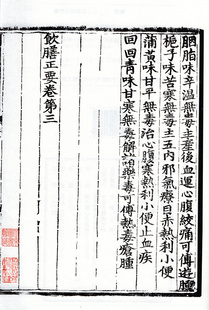 胭脂味辛溫無毒主產後血運心腹絞痛可傅遊腫
梔子味苦寒無毒主五內邪氣療目赤熱利小便
蒲黃味甘平無毒治心腹寒熱利小便止血疾
回回青味甘寒無毒解諸藥毒可傅熱毒瘡腫
飲膳正要卷第三